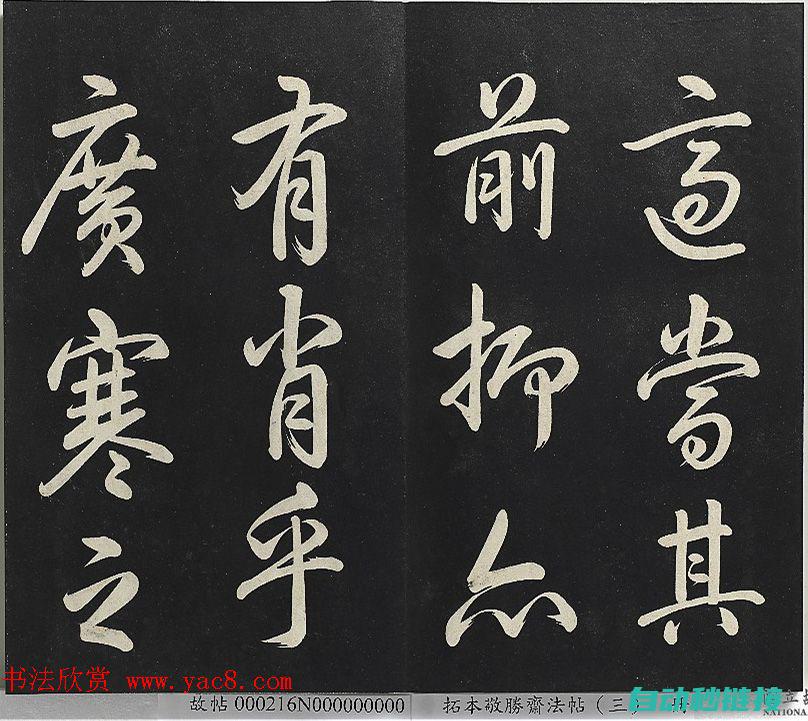 適當其
前抑亦
有肖乎
廣寒之
书法欣赏 www.yac8.com
故帖 000216N000000000
拓本敬勝齋法帖（三）
自动秒链接
NATIONA